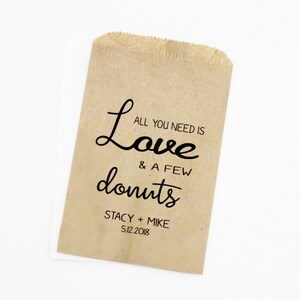 ALL YOU NEED IS
Love
& A FEW
donuts
STACY + MIKE
5.12.2018